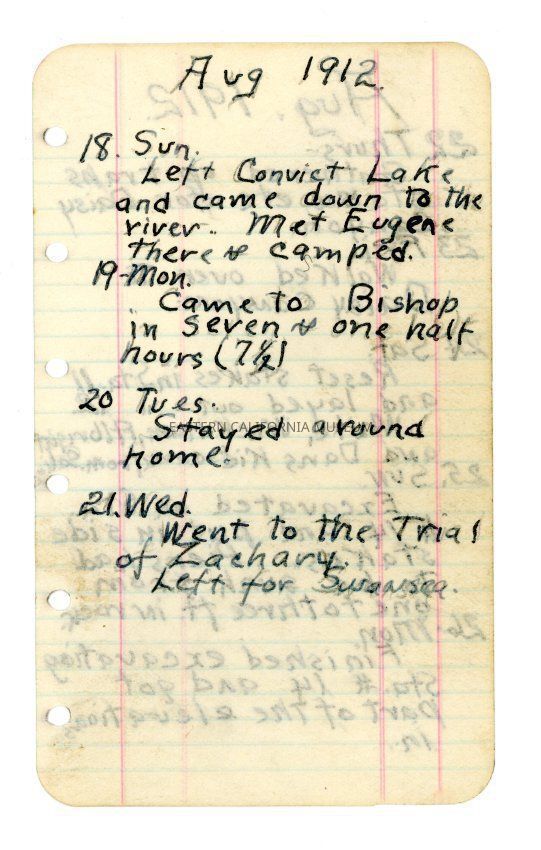 Aug 1912.
18. Sun.
Left Convict Lake
and came down to the
river. Met Eugene
there & camped.
19-Mon.
Came to Bishop
in seven & one half
hours (7½)
20 Tues.
Stayed around
home.
EASTERN CALIFORNIA MUSEUM
21. Wed.
Went to the Trial
of Zachary.
Left for Swansea.